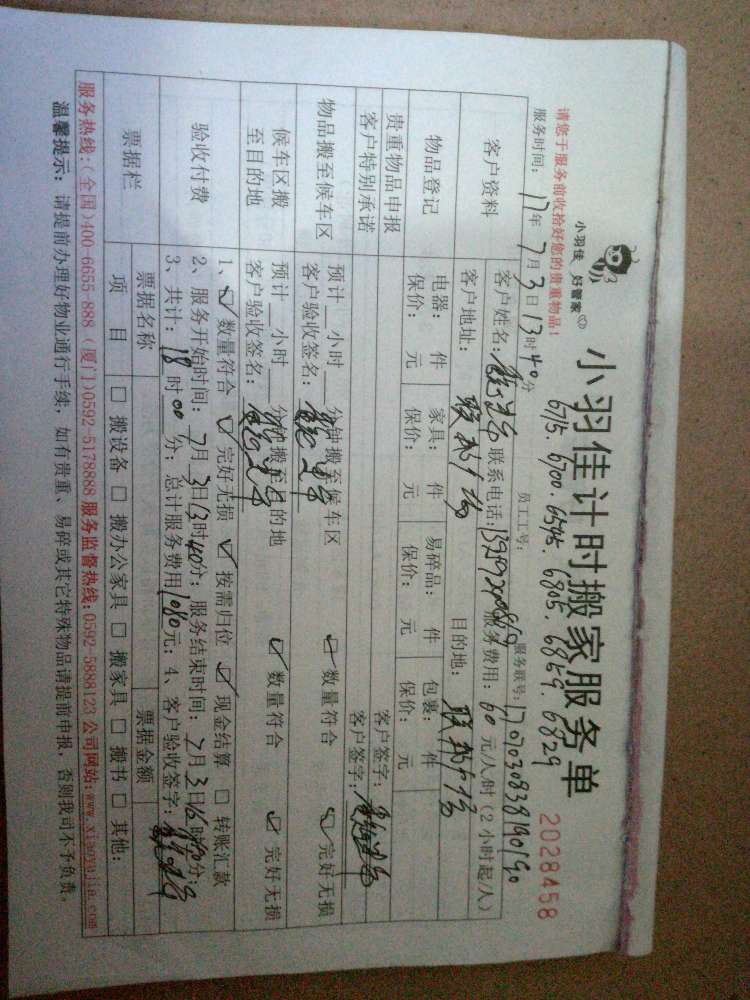 小羽佳 好管家
小羽佳计时搬家服务单
2028458
6715. 6700. 6595. 6805. 6859. 6829
请您于服务前收拾好您的贵重物品!
员工工号:
服务联号:1707030838190190
服务时间: 17年7月3日13时40分
客户资料
客户姓名: 联系电话: 服务费用: 60元/人/时(2小时起/人)
客户地址: 联邦广场 目的地: 联邦广场
物品登记
电器: 件 家具: 件 易碎品: 件 包裹: 件
保价: 元 保价: 元 保价: 元 保价: 元
贵重物品申报 客户签字:
客户特别承诺 客户签字:
物品搬至候车区
预计__小时__分钟搬至候车区 ☑数量符合 ☑完好无损
客户验收签名:
候车区搬至目的地
预计__小时__分钟搬至目的地 ☑数量符合 ☑完好无损
客户验收签名:
验收付费
1、☑数量符合 ☑完好无损 ☑按需归位 ☑现金结算 □转账汇款
2、服务开始时间: 7月3日13时40分; 服务结束时间: 7月3日16时40分;
3、共计: 18时00分; 总计服务费用1080元; 4、客户验收签字:
票据栏
票据名称 票据金额
项目 □搬设备 □搬办公家具 □搬家具 □搬书 □其他:
服务热线:(全国)400-6655-888 (厦门)0592-5178888 服务监督热线:0592-5888123 公司网站:www.xiaoyujia.com
温馨提示: 请提前办理好物业通行手续, 如有贵重、易碎或其它特殊物品请提前申报, 否则我司不予负责。